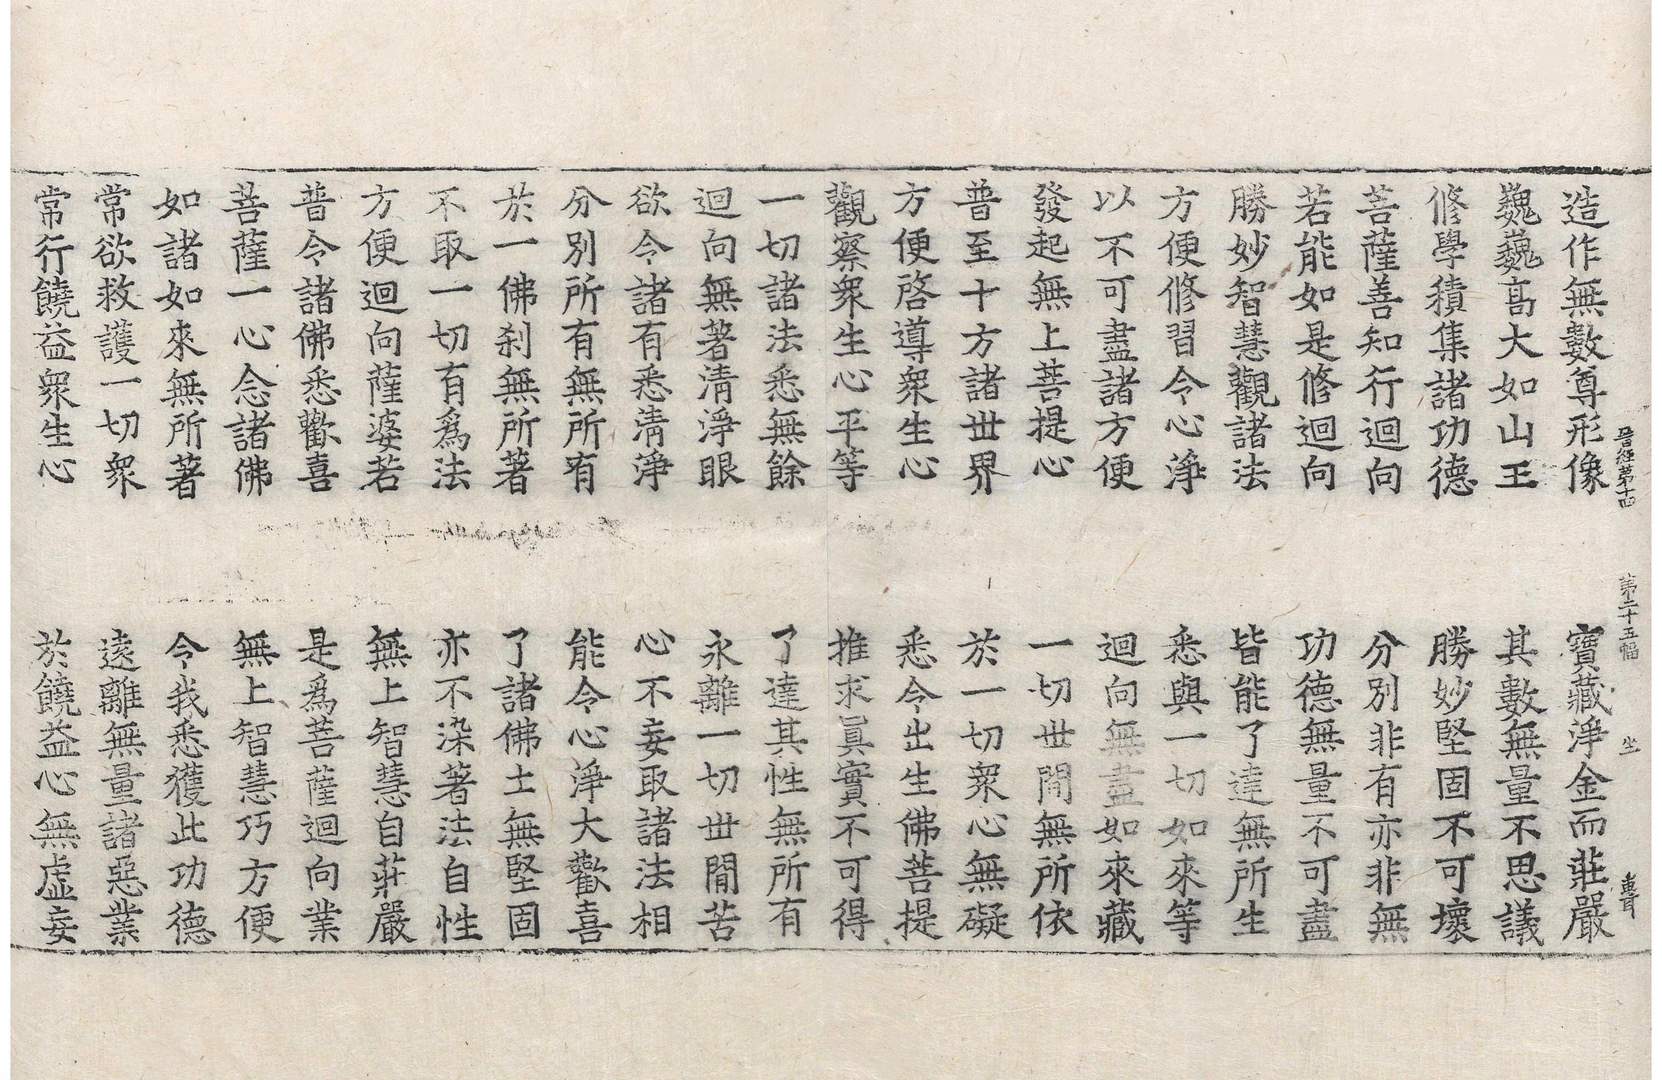 晉經第十四 第二十五幅 坐
造作無數尊形像 寶藏淨金而莊嚴
巍巍高大如山王 其數無量不思議
修學積集諸功德 勝妙堅固不可壞
菩薩善知行迴向 分別非有亦非無
若能如是修迴向 功德無量不可盡
勝妙智慧觀諸法 皆能了達無所生
方便修習令心淨 悉與一切如來等
以不可盡諸方便 迴向無盡如來藏
發起無上菩提心 一切世間無所依
普至十方諸世界 於一切衆心無礙
方便啓導衆生心 悉令出生佛菩提
觀察衆生心平等 推求眞實不可得
一切諸法悉無餘 了達其性無所有
迴向無著清淨眼 永離一切世間苦
欲令諸有悉清淨 心不妄取諸法相
分別所有無所有 能令心淨大歡喜
於一佛刹無所著 了諸佛土無堅固
不取一切有爲法 亦不染著法自性
方便迴向薩婆若 無上智慧自莊嚴
普令諸佛悉歡喜 是爲菩薩迴向業
菩薩一心念諸佛 無上智慧巧方便
如諸如來無所著 令我悉獲此功德
常欲救護一切衆 遠離無量諸惡業
常行饒益衆生心 於饒益心無虛妄